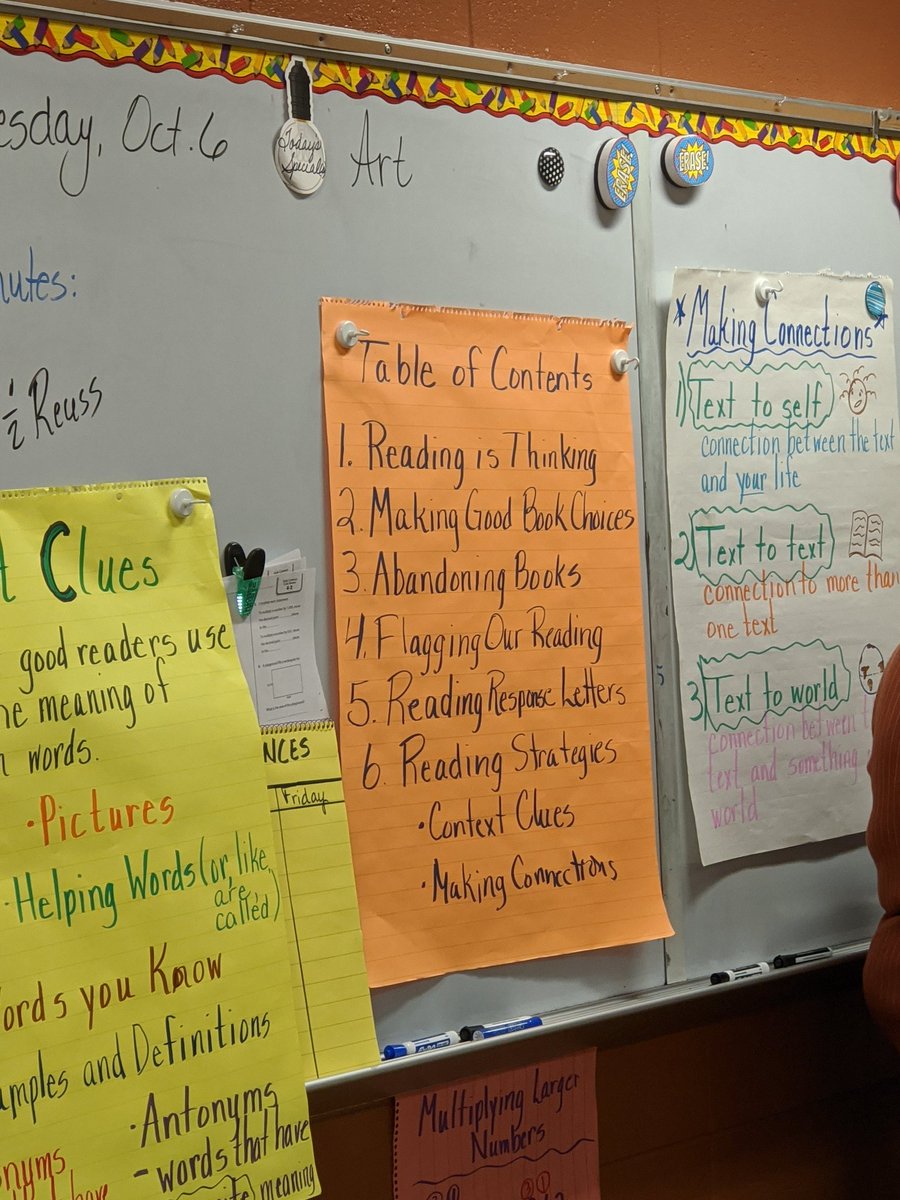 esday, Oct. 6
Today's
Specials
Art
ERASE!
ERASE!
nutes:
1/2 Reuss
t Clues
good readers use
he meaning of
n words.
•Pictures
•Helping Words (or, like,
are,
called)
ords you Know
amples and Definitions
•Antonyms
- words that have
meaning
onyms
have
NCES
Friday
Table of Contents
1. Reading is Thinking
2. Making Good Book Choices
3. Abandoning Books
4. Flagging Our Reading
5. Reading Response Letters
6. Reading Strategies
•Context Clues
•Making Connections
*Making Connections*
1) Text to self
connection between the text
and your life
2) Text to text
connection to more than
one text
3) Text to world
connection between
text and something
world
5
Multiplying Larger
Numbers